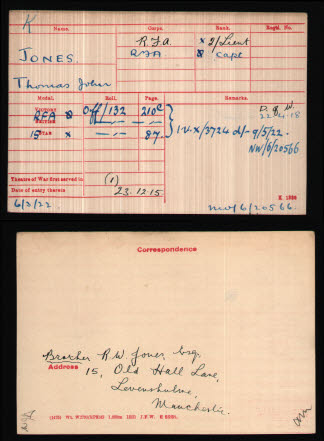 K
Name. Corps. Rank. Regtl. No.
JONES. R.F.A. × 2/Lieut
RFA Capt
Thomas John
Medal. Roll. Page. Remarks.
Victory RFA Off/132 210c D. of W.
22.4.18
British —,,— —,,—
15 Star × —,,— 87. I.V.X/3724 d/- 9/5/22.
NW/6/20566
Theatre of War first served in (1)
Date of entry therein 23.12.15
K. 1380
6/3/22. NW/6/20566.
Correspondence
Brother R W Jones, Esq.
Address 15, Old Hall Lane,
Levenshulme,
Manchester.